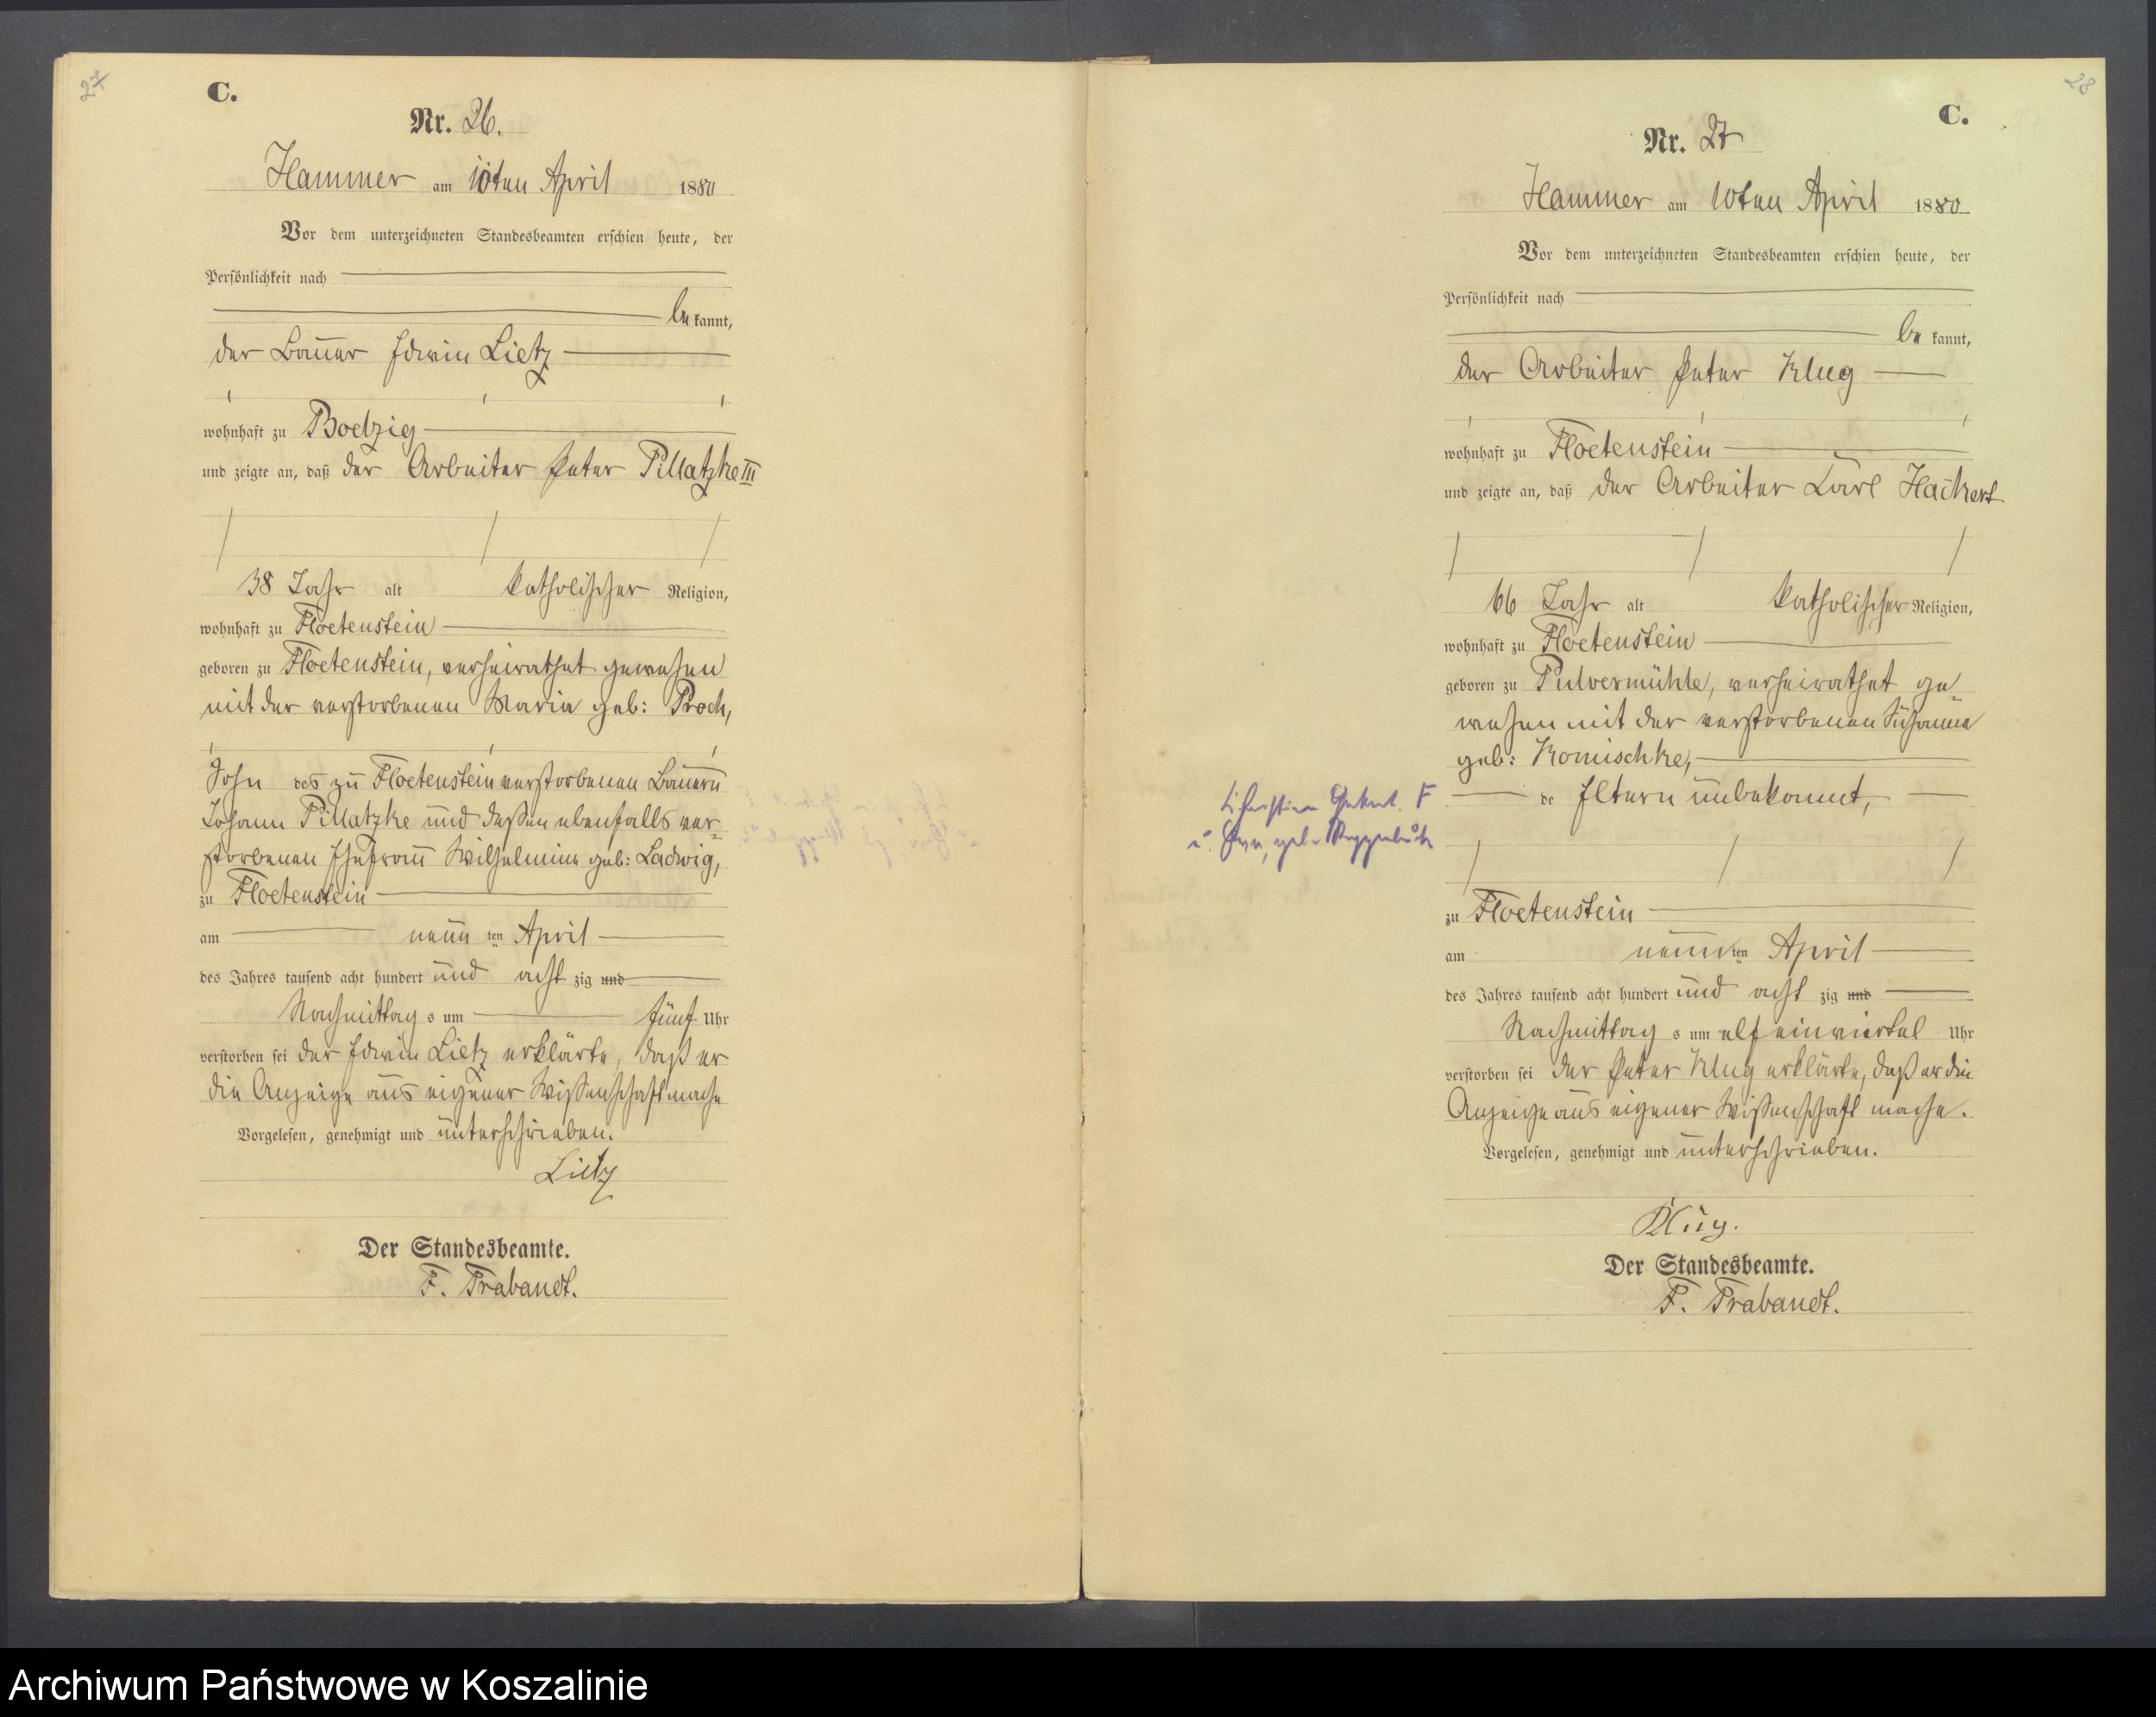 C.
Nr. 26.
Hammer am 10ten April 1880
Vor dem unterzeichneten Standesbeamten erschien heute, der
Persönlichkeit nach
be kannt,
der Bauer Edwin Lietz
wohnhaft zu Boelzig
und zeigte an, daß der Arbeiter Peter Pillatzke III
38 Jahr alt katholischer Religion,
wohnhaft zu Floetenstein
geboren zu Floetenstein, verheirathet gewesen
mit der verstorbenen Maria geb: Proch,
Sohn des zu Floetenstein verstorbenen Bauern
Johann Pillatzke und dessen ebenfalls ver-
storbenen Ehefrau Wilhelmine geb: Ladwig,
zu Floetenstein
am neun ten April
des Jahres tausend acht hundert und acht zig und
Nachmittag s um fünf Uhr
verstorben sei der Edwin Lietz erklärte, daß er
die Anzeige aus eigener Wissenschaft mache
Vorgelesen, genehmigt und unterschrieben.
Lietz
Der Standesbeamte.
F. Trabandt.
28
C.
Nr. 27
Hammer am 10ten April 1880
Vor dem unterzeichneten Standesbeamten erschien heute, der
Persönlichkeit nach
be kannt,
der Arbeiter Peter Klug
wohnhaft zu Floetenstein
und zeigte an, daß der Arbeiter Carl Hackert
66 Jahr alt katholischer Religion,
wohnhaft zu Floetenstein
geboren zu Pulvermühle, verheirathet ge-
wesen mit der verstorbenen Susanna
geb: Komischke,
de Eltern unbekannt,
zu Floetenstein
am neun ten April
des Jahres tausend acht hundert und acht zig und
Nachmittag s um elf einviertel Uhr
verstorben sei der Peter Klug erklärte, daß er die
Anzeige aus eigener Wissenschaft mache.
Vorgelesen, genehmigt und unterschrieben.
Klug.
Der Standesbeamte.
F. Trabandt.
Archiwum Państwowe w Koszalinie